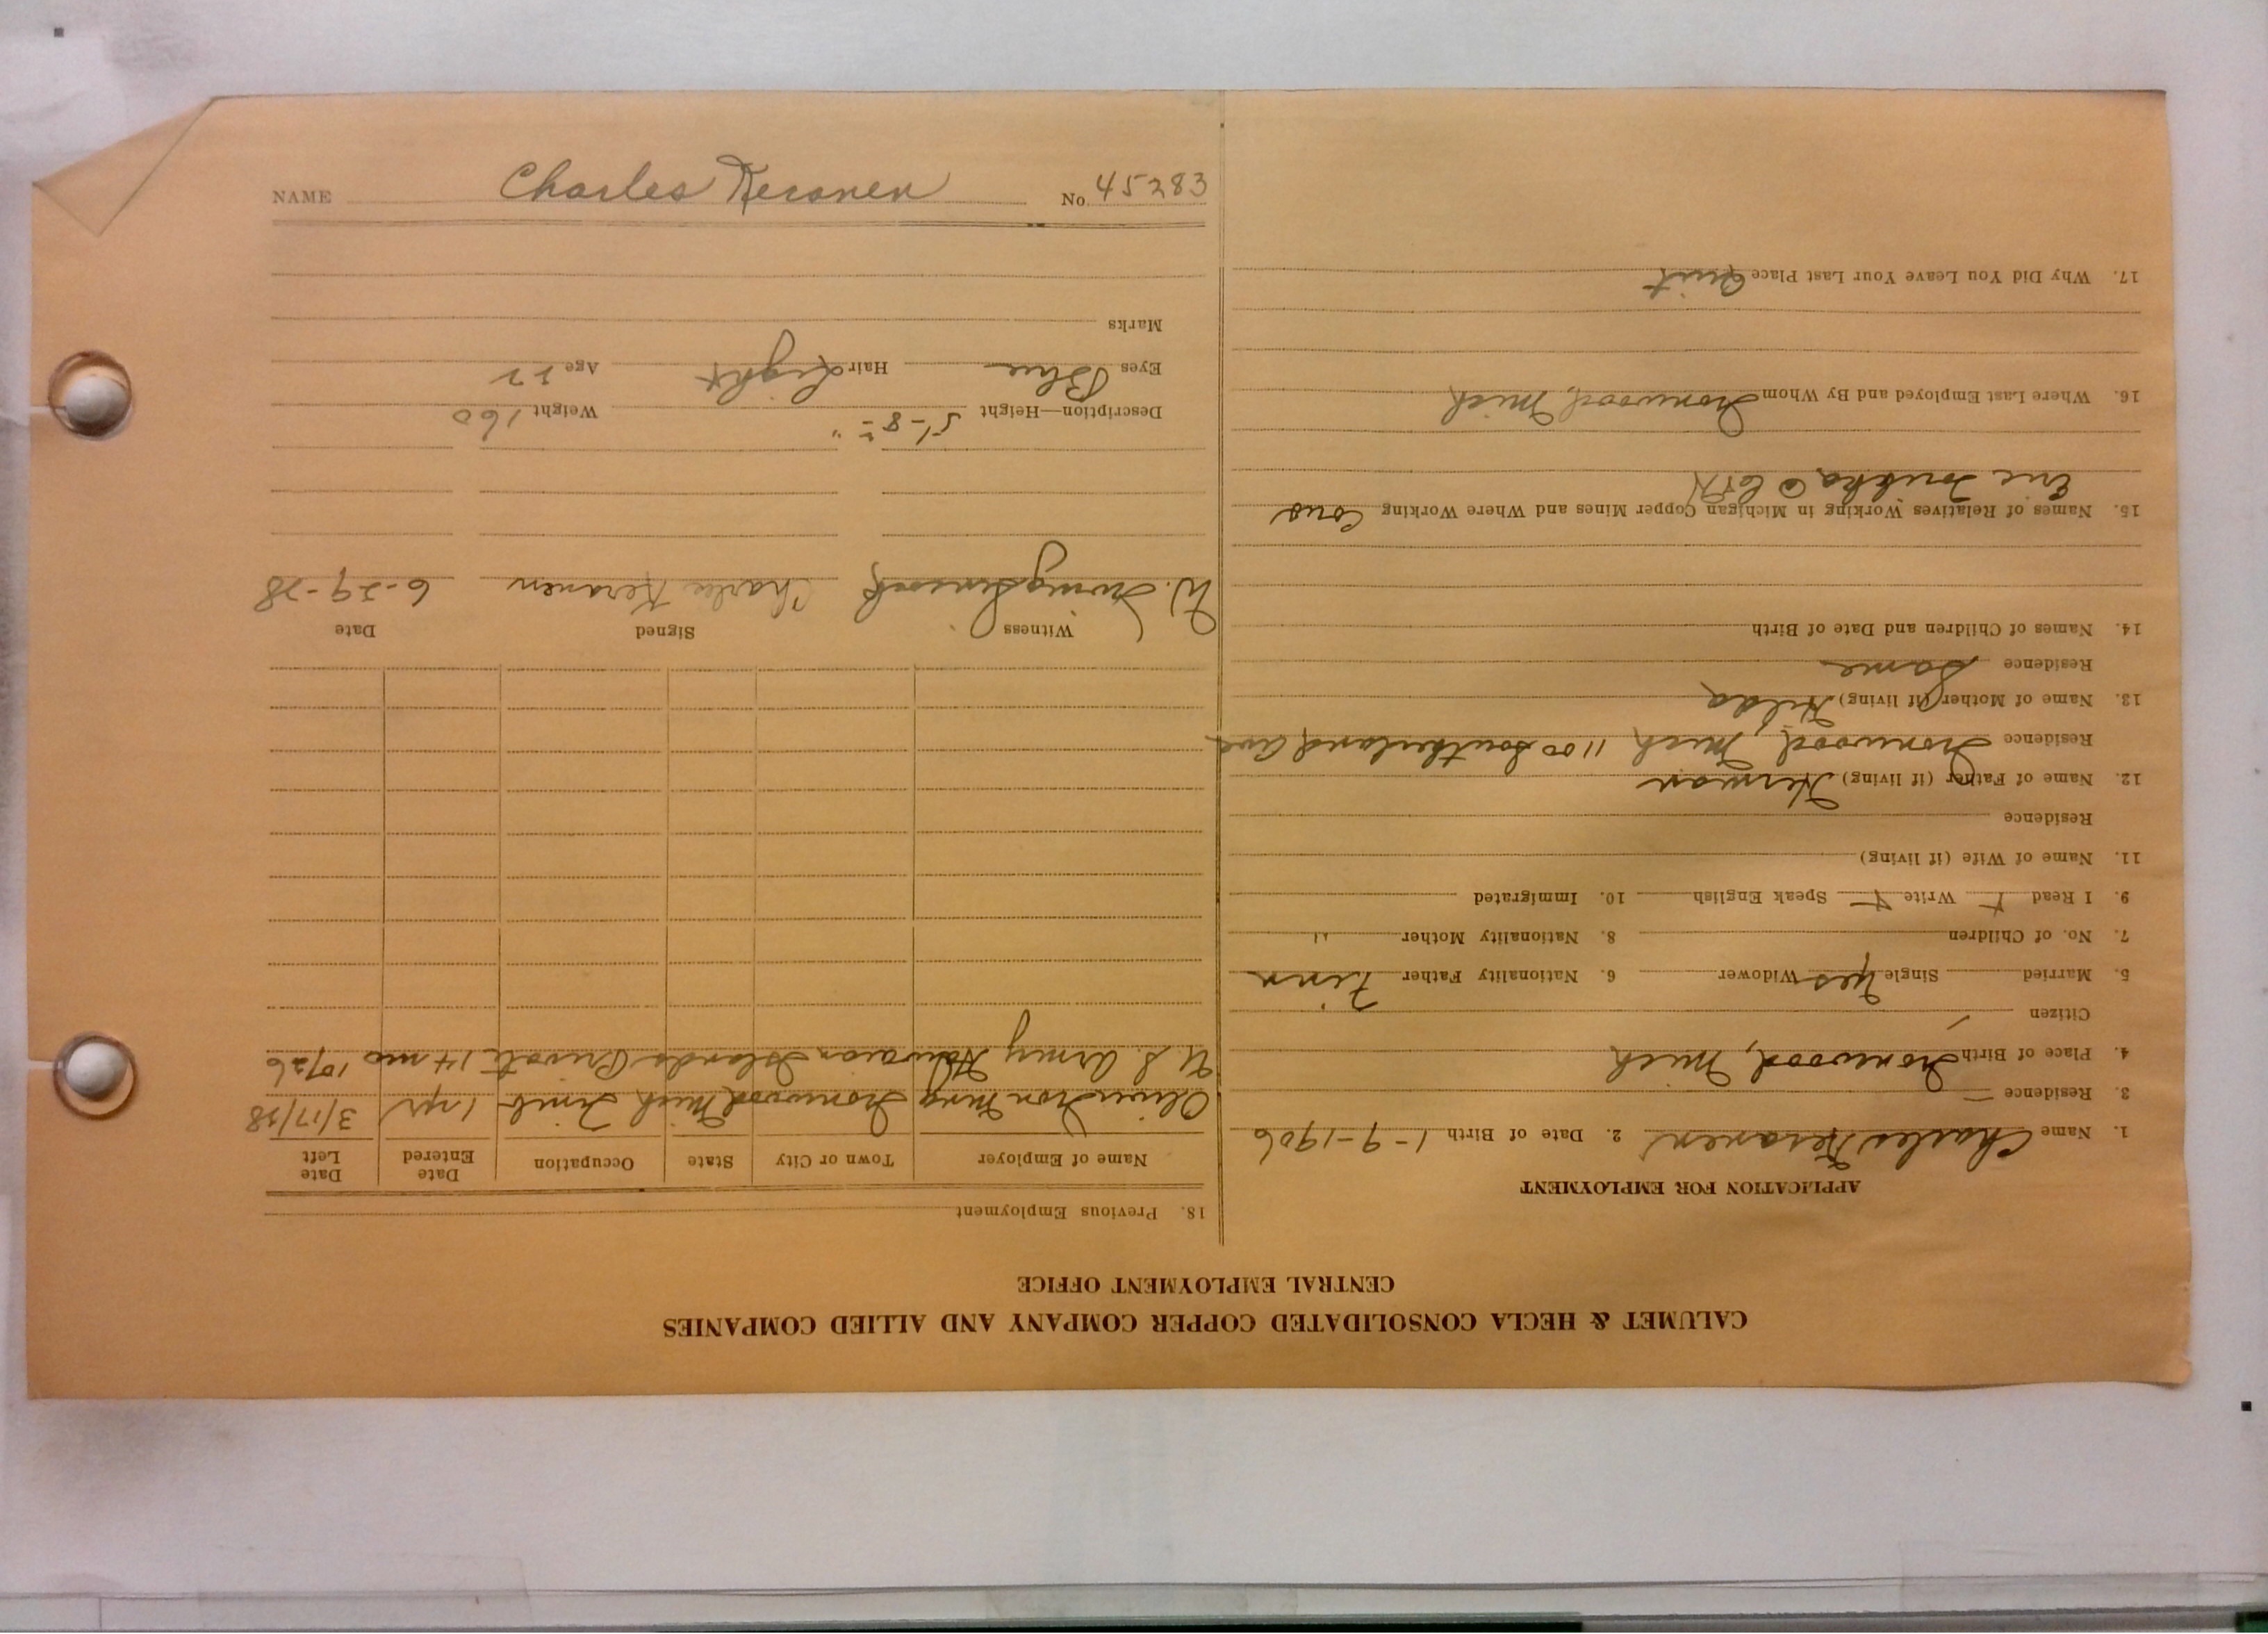 NAME Charles Keranen No. 45283
CALUMET & HECLA CONSOLIDATED COPPER COMPANY AND ALLIED COMPANIES
CENTRAL EMPLOYMENT OFFICE
APPLICATION FOR EMPLOYMENT
1. Name Charles Keranen 2. Date of Birth 1-9-1906
3. Residence
4. Place of Birth Ironwood, Mich
Citizen
5. Married Single Yes Widower 6. Nationality Father Finn
7. No. of Children 8. Nationality Mother "
9. I Read Write Speak English 10. Immigrated
11. Name of Wife (if living)
Residence
12. Name of Father (if living) Herman
Residence Ironwood, Mich 1100 Southerland Ave
13. Name of Mother (if living) Hilda
Residence Same
14. Names of Children and Date of Birth
15. Names of Relatives Working in Michigan Copper Mines and Where Working Cous
Eric C&H
16. Where Last Employed and By Whom Ironwood, Mich
17. Why Did You Leave Your Last Place Quit
18. Previous Employment
Name of Employer Town or City State Occupation Date Entered Date Left
Oliver Iron Mng Ironwood Mich 1 yr 3/17/28
U.S. Army Hawaian Islands Private 14 mo 1926
Witness Signed Date
W. Charles Keranen 6-29-28
Description—Height 5'-8" Weight 160
Eyes Blue Hair Light Age 22
Marks